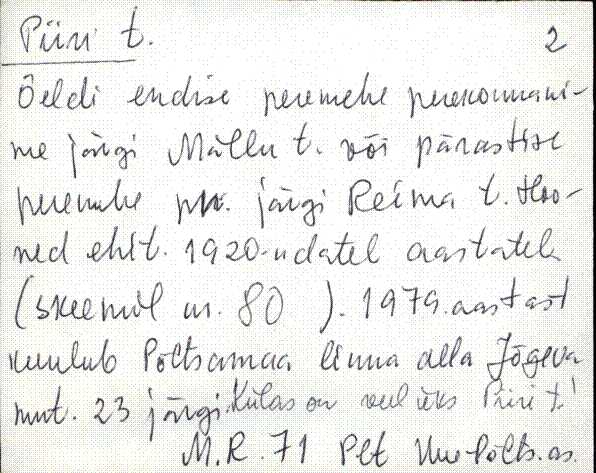 Piiri t. 2
Öeldi endise peremehe perekonnani-
me järgi Mällu t. või pärastise
peremehe pn. järgi Reima t. Hoo-
ned ehit. 1920-ndatel aastatel
(skeemil nr. 80 ). 1979. aastast
kuulub Põltsamaa linna alla Jõgeva
mnt. 23 järgi. Külas on veel üks Piiri t.!
M.R. 71 Plt Põlts. as.